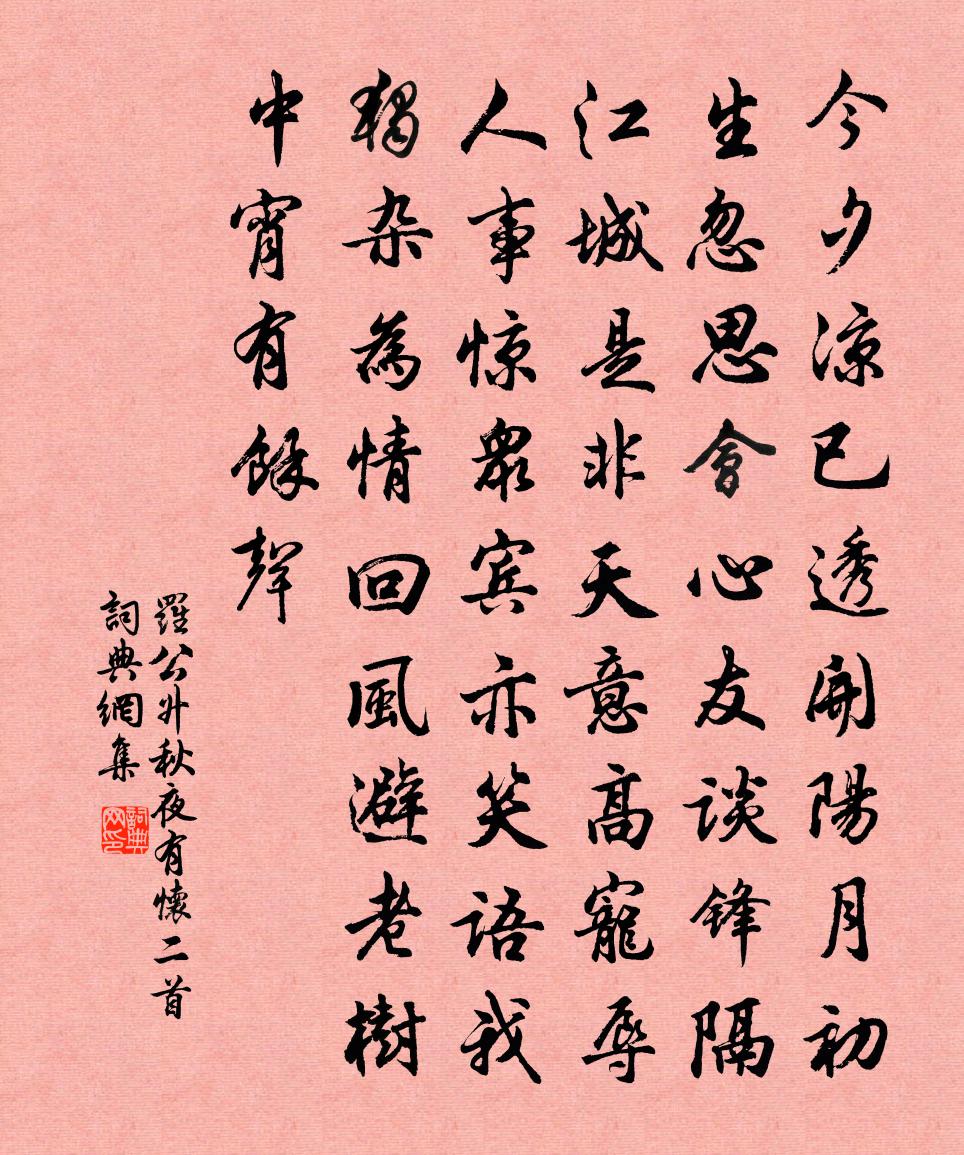 今夕涼已透開陽月初
生忽思會心友談鋒隔
江城是非天意高寵辱
人事惊衆宾亦笑語我
獨杂為情回風避老樹
中宵有餘聲
羅公升秋夜有懷二首
詞典網集
詞典网印